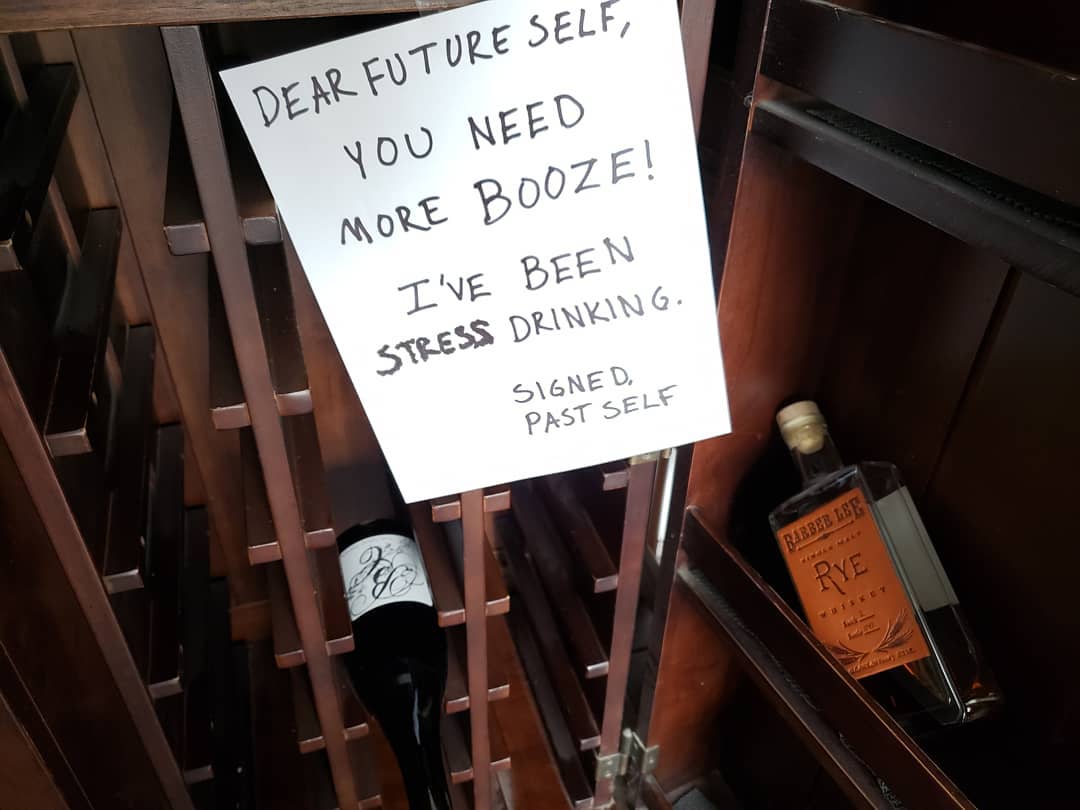 DEAR FUTURE SELF,
YOU NEED
MORE BOOZE!
I'VE BEEN
STRESS DRINKING.
SIGNED,
PAST SELF
BARBER LEE
SINGLE MALT
RYE
WHISKEY